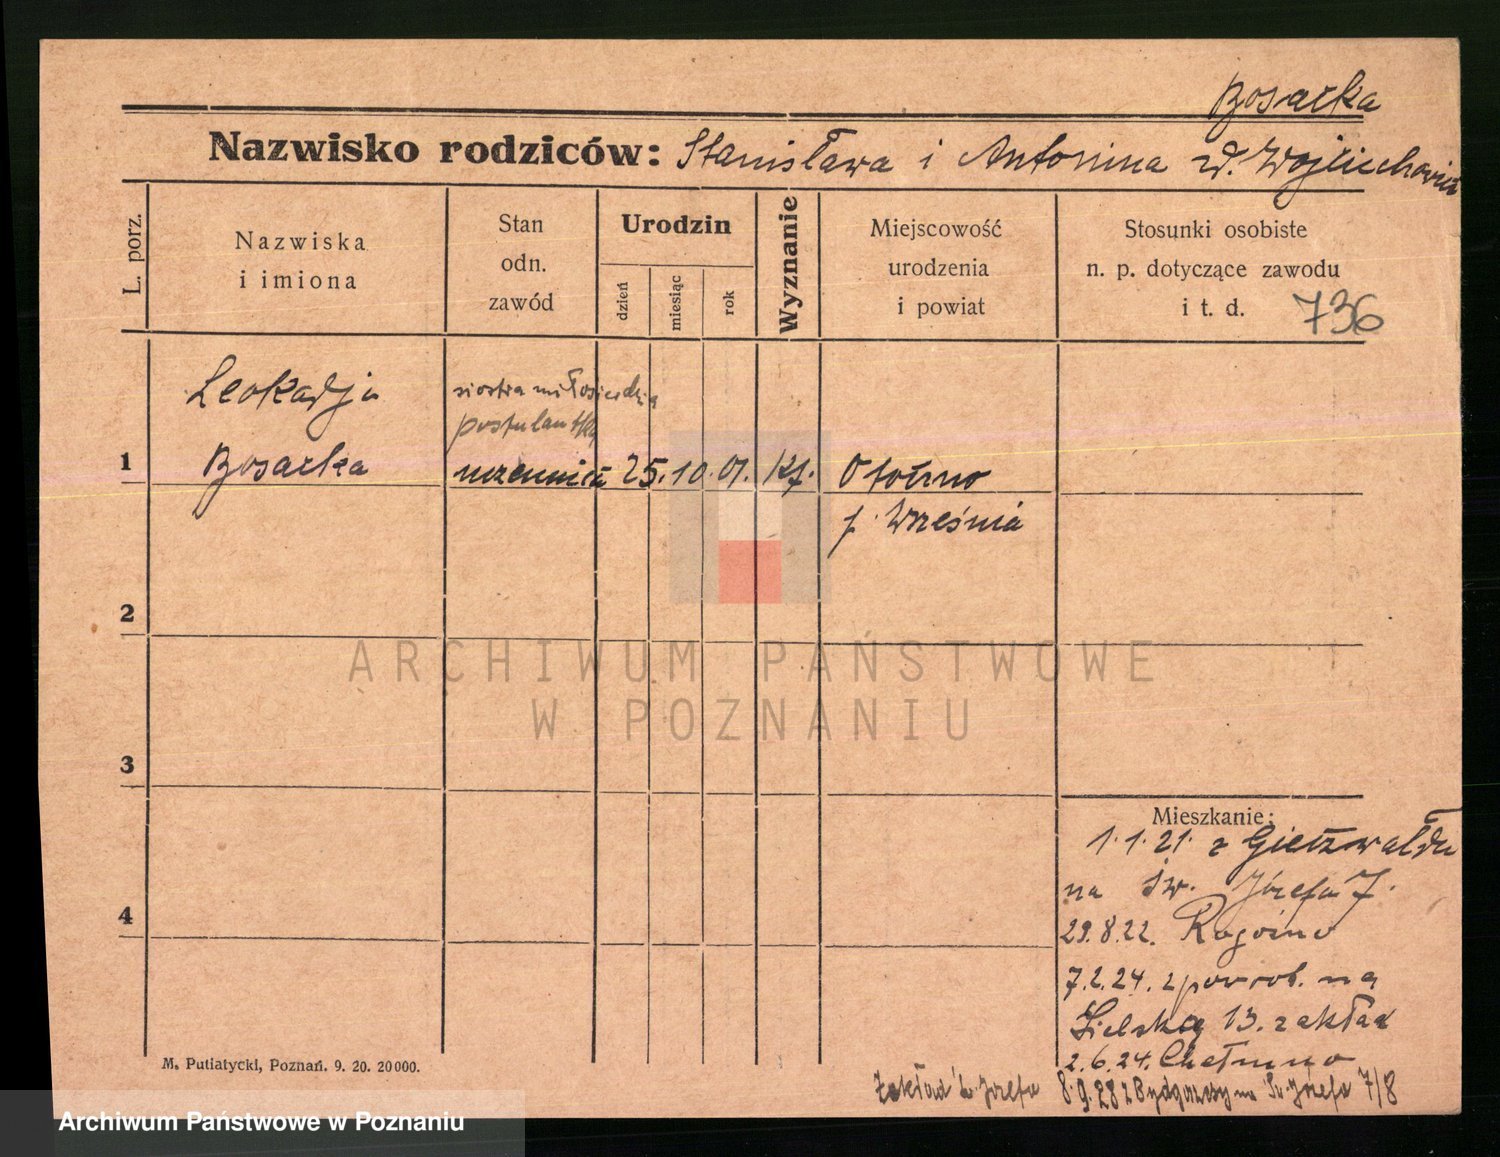 Bosacka
Nazwisko rodziców: Stanisława i Antonina
L. porz.
Nazwiska
i imiona
Stan
odn.
zawód
Urodzin
dzień
miesiąc
rok
Wyznanie
Miejscowość
urodzenia
i powiat
Stosunki osobiste
n. p. dotyczące zawodu
i t. d.
736
Leokadja
siostra miłosierdzia
postulantka
1 Bosacka uczennica 25. 10. 01. kt. Otoczno
p. Września
2
3
4
Mieszkanie:
1.1.21. z Gietrzwałdu
na św. Józefa 7.
29.8.22. Rogoźno
7.2.24. z powrot. na
13. zakład
2.6.24. Chełmno
Zakład św. Józefa 8.9.28 z Bydgoszczy na Św. Józefa 7/8
M. Putiatycki, Poznań. 9. 20. 20000.
ARCHIWUM PAŃSTWOWE
W POZNANIU
Archiwum Państwowe w Poznaniu